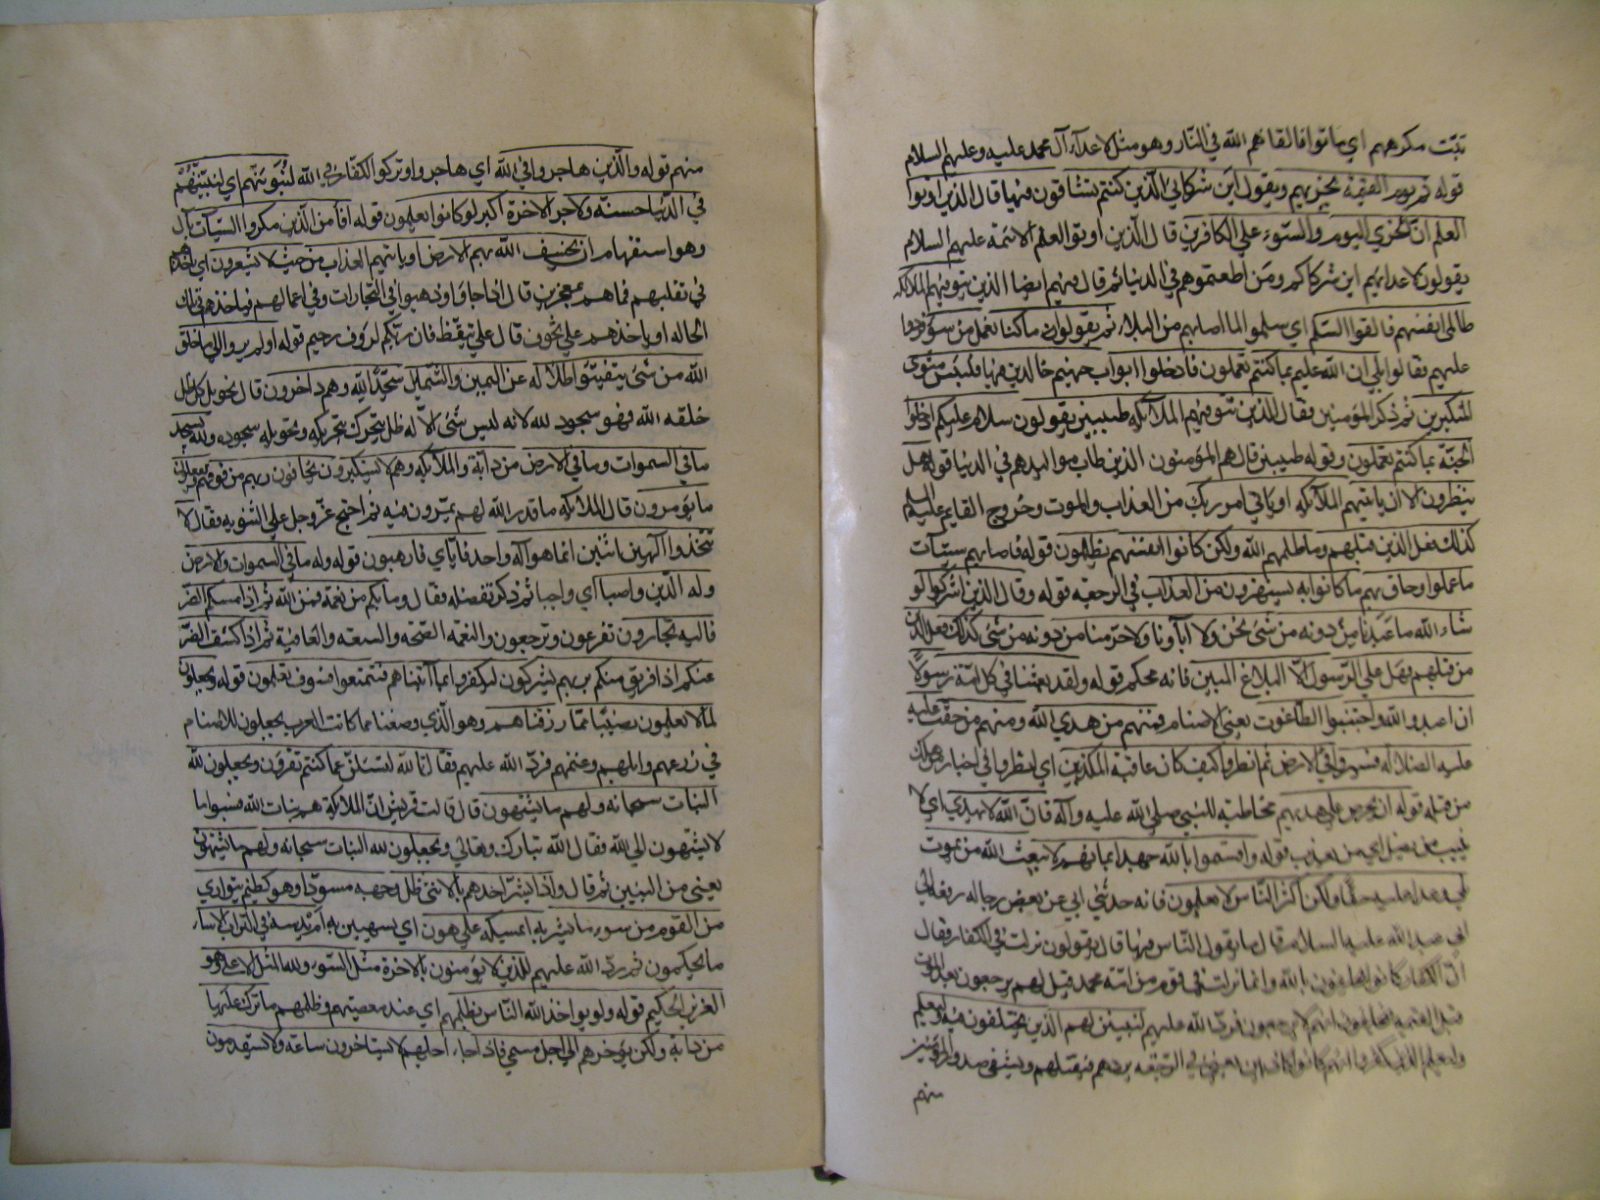 تثبت مكرهم اي ماتوا فالقاهم الله في النار وهو مثل لاعداء آل محمد عليه وعليهم السلام
قوله ثم يوم القيمة يخزيهم ويقول اين شركائي الذين كنتم تشاقون فيها قال الذين اوتوا
العلم ان الخزي اليوم والسوء علي الكافرين قال الذين اوتوا العلم الائمة عليهم السلام
يقولون لاعدائهم اين شركاكم ومن اطعتموهم في الدنيا ثم قال فيهم ايضا الذين تتوفيهم الملائكه
ظالمي انفسهم فالقوا السلم اي سلموا لما اصابهم من البلاء ثم يقولون ما كنا نعمل من سوء فردوا
عليهم فقالوا بلي ان الله عليم بما كنتم تعملون فادخلوا ابواب جهنم خالدين فيها فلبئس مثوي
المتكبرين ثم ذكر المؤمنين فقال الذين تتوفيهم الملائكه طيبين يقولون سلام عليكم ادخلوا
الجنة بما كنتم تعملون وقوله طيبين قال هم المؤمنون الذين طاب مواليدهم في الدنيا قوله هل
ينظرون الا ان ياتيهم الملائكه او ياتي امر ربك من العذاب والموت وخروج القايم عليه السلم
كذلك فعل الذين من قبلهم وما ظلمهم الله ولكن كانوا انفسهم يظلمون قوله فاصابهم سيئات
ما عملوا وحاق بهم ما كانوا به يستهزؤن من العذاب في الرجعه قوله وقال الذين اشركوا لو
شاء الله ما عبدنا من دونه من شئ نحن ولا آباؤنا ولا حرمنا من دونه من شئ كذلك فعل الذين
من قبلهم فهل علي الرسول الا البلاغ المبين فانه محكم قوله ولقد بعثنا في كل امة رسولا
ان اعبدوا الله واجتنبوا الطاغوت يعني الاصنام فمنهم من هدي الله ومنهم من حقت عليه
عليه الضلاله فسيروا في الارض ثم انظروا كيف كان عاقبة المكذبين اي انظروا في اخبار من هلك
من قبله قوله ان تحرص علي هديهم مخاطبة للنبي صلي الله عليه وآله فان الله لا يهدي اي لا
يثيب من يضل اي من يعذب قوله واقسموا بالله جهد ايمانهم لا يبعث الله من يموت
بلي وعدا عليه حقا ولكن اكثر الناس لا يعلمون فانه حدثني ابي عن بعض رجاله رفعه الي
ابي عبد الله عليه السلام قال ما يقول الناس فيها قال يقولون نزلت في الكفار فقال
ان الكفار كانوا لا يحلفون بالله وانما نزلت في قوم من امة محمد قيل لهم يرجعون بعد الموت
قبل القيمة فيحلفون انهم لا يرجعون فرد الله عليهم ليبين لهم الذين يختلفون فيه وليعلم
وليعلم الذين كفروا انهم كانوا كاذبين يعني في الرجعه يردهم فيقتلهم ويشفي صدور المؤمنين
منهم
منهم قوله والذين هاجروا في الله اي هاجروا وتركوا الكفار في الله لنبوئنهم اي لنبيتنهم
في الدنيا حسنة ولاجر الاخرة اكبر لو كانوا يعلمون قوله افامن الذين مكروا السيئات بآل
وهو استفهام ان يخسف الله بهم الارض او ياتيهم العذاب من حيث لا يشعرون او ياخذهم
في تقلبهم فما هم بمعجزين قال اذا جاؤا وذهبوا في التجارات وفي اعمالهم فياخذهم في تلك
الحاله او ياخذهم علي تخوف قال علي تيقظ فان ربكم لرؤف رحيم قوله اولم يروا الي ما خلق
الله من شئ يتفيؤا ظلاله عن اليمين والشمايل سجدا لله وهم داخرون قال تحويل كل ظل
خلقه الله فهو سجود لله لانه ليس شئ الا له ظل يتحرك بتحريكه وتحويله سجوده ولله يسجد
ما في السموات وما في الارض من دابة والملائكه وهم لا يستكبرون يخافون ربهم من فوقهم ويفعلون
ما يؤمرون قال الملائكه ما قدر الله لهم يمرون فيه ثم احتج عز وجل علي الثنويه فقال لا
تتخذوا الهين اثنين انما هو اله واحد فاياي فارهبون قوله وله ما في السموات والارض
وله الدين واصبا اي واجبا ثم ذكر تفضله فقال وما بكم من نعمة فمن الله ثم اذا مسكم الضر
فاليه تجارون تفزعون وترجعون والنعمه الصحه والسعه والعافية ثم اذا كشف الضر
عنكم اذا فريق منكم بربهم يشركون ليكفروا بما آتيناهم فتمتعوا فسوف تعلمون قوله ويجعلون
لما لا يعلمون نصيبا مما رزقناهم وهو الذي وصفنا مما كانت العرب يجعلون للاصنام
في زرعهم وابلهم وغنمهم فرد الله عليهم فقال تالله لتسئلن عما كنتم تفترون ويجعلون لله
البنات سبحانه ولهم ما يشتهون قال قالت قريش ان الملائكة هم بنات الله فنسبوا ما
لا يشتهون الي الله فقال الله تبارك وتعالي ويجعلون لله البنات سبحانه ولهم ما يشتهون
يعني من البنين ثم قال واذا بشر احدهم بالانثي ظل وجهه مسودا وهو كظيم يتواري
من القوم من سوء ما بشر به ايمسكه علي هون اي يستهين به ام يدسه في التراب الا ساء
ما يحكمون ثم رد الله عليهم للذين لا يؤمنون بالاخرة مثل السوء ولله المثل الاعلي وهو
العزيز الحكيم قوله ولو يؤاخذ الله الناس بظلمهم اي عند معصيتهم وظلمهم ما ترك عليها
من دابة ولكن يؤخرهم الي اجل مسمي فاذا جاء اجلهم لا يستاخرون ساعة ولا يستقدمون